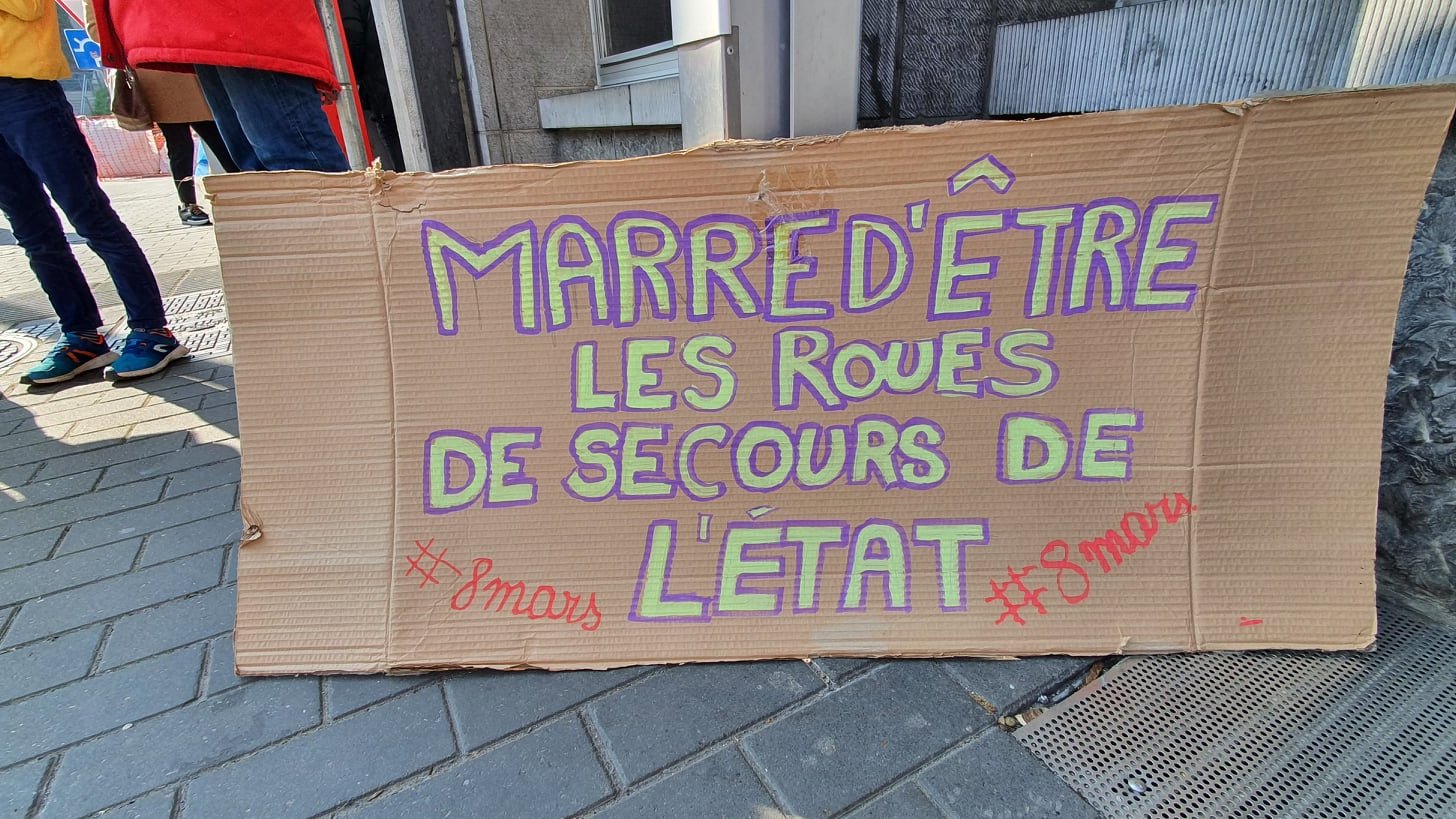 MARRE D'ÊTRE
LES ROUES
DE SECOURS DE
L'ÉTAT
#8mars
#8mars